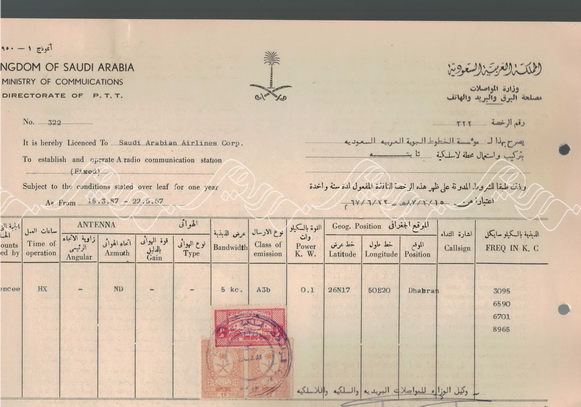 آنموذج ١ - ٩٥٠
NGDOM OF SAUDI ARABIA
MINISTRY OF COMMUICATIONS
DIRECTORATE OF P. T. T.
المملكة العربية السعودية
وزارة المواصلات
مصلحة البرق والبريد والهاتف
No. 322
رقم الرخصة ٣٢٢
It is hereby Licenced To Saudi Arabian Airlines Corp.
يصرح بهذا لـ مؤسسة الخطوط الجوية العربيه السعوديه
To establish and operate A radio communication station
بتركيب واستعمال محطة لاسلكية ثابته
(Fixed)
Subject to the conditions stated over leaf for one year
وذلك طبقا للشروط المدونة على ظهر هذه الرخصة النافذة المفعول لمدة سنة واحدة
As From
اعتبارا من
ANTENNA الهوائي
Geog. Position الموقع الجغرافي
ساعات العمل
Time of operation
زاوية الاتجاه الرئيسي
Angular
اتجاه الهوائي
Azmuth
قوة الهوائي
Gain
نوع الهوائي
Type
عرض الذبذبة
Bandwidth
نوع الارسال
Class of emission
القوة بالكيلو وات
Power K. W.
خط عرض
Latitude
خط طول
Longitude
الموقع
Position
اشارة النداء
Callsign
الذبذبة بالكيلو سايكل
FREQ IN K. C
HX - ND - - 5 kc. A3b 0.1 26N17 50E20 Dhahran 3095
6590
6701
8965
وكيل الوزاره للمواصلات البريديه والسلكيه واللاسلكيه